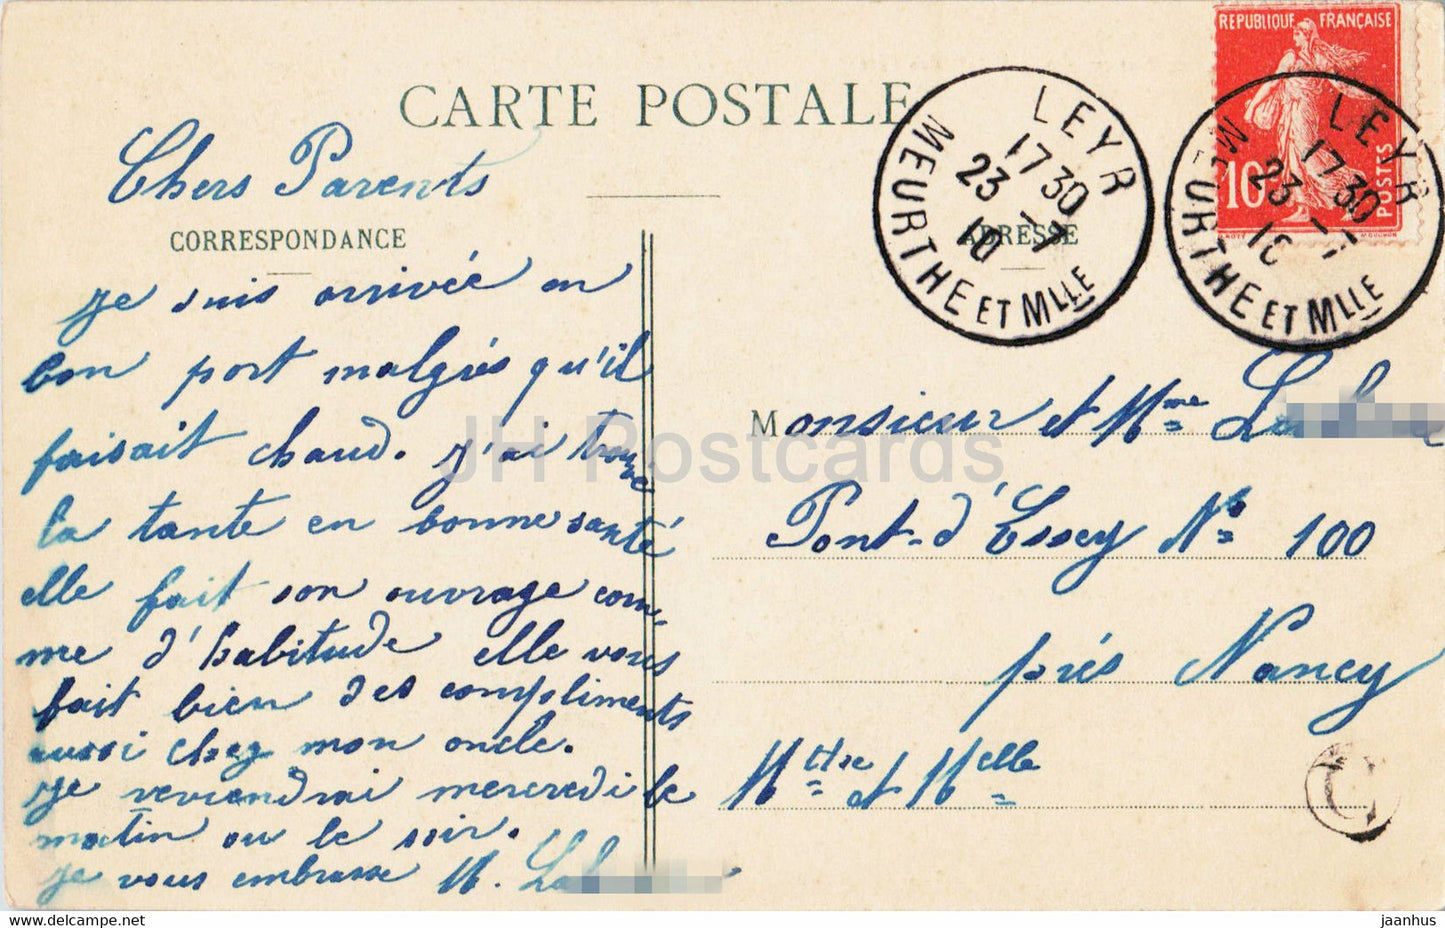 CARTE POSTALE
Chers Parents
CORRESPONDANCE
je suis arrivée en
bon port malgrés qu'il
faisait chaud. j'ai trouvé
la tante en bonne santé
elle fait son ouvrage com-
me d'habitude elle vous
fait bien des compliments
aussi chez mon oncle.
je reviendrai mercredi le
matin ou le soir.
je vous embrasse M.
LEYR
17 30
23 -7
10
MEURTHE ET MLLE
ADRESSE
REPUBLIQUE FRANÇAISE
10c
POSTES
LEYR
17 30
23
10
MEURTHE ET MLLE
Monsieur et Mme
Pont-d'Essey No 100
prés Nancy
Mthe et Melle
C
JH Postcards
www.delcampe.net
jaanhus